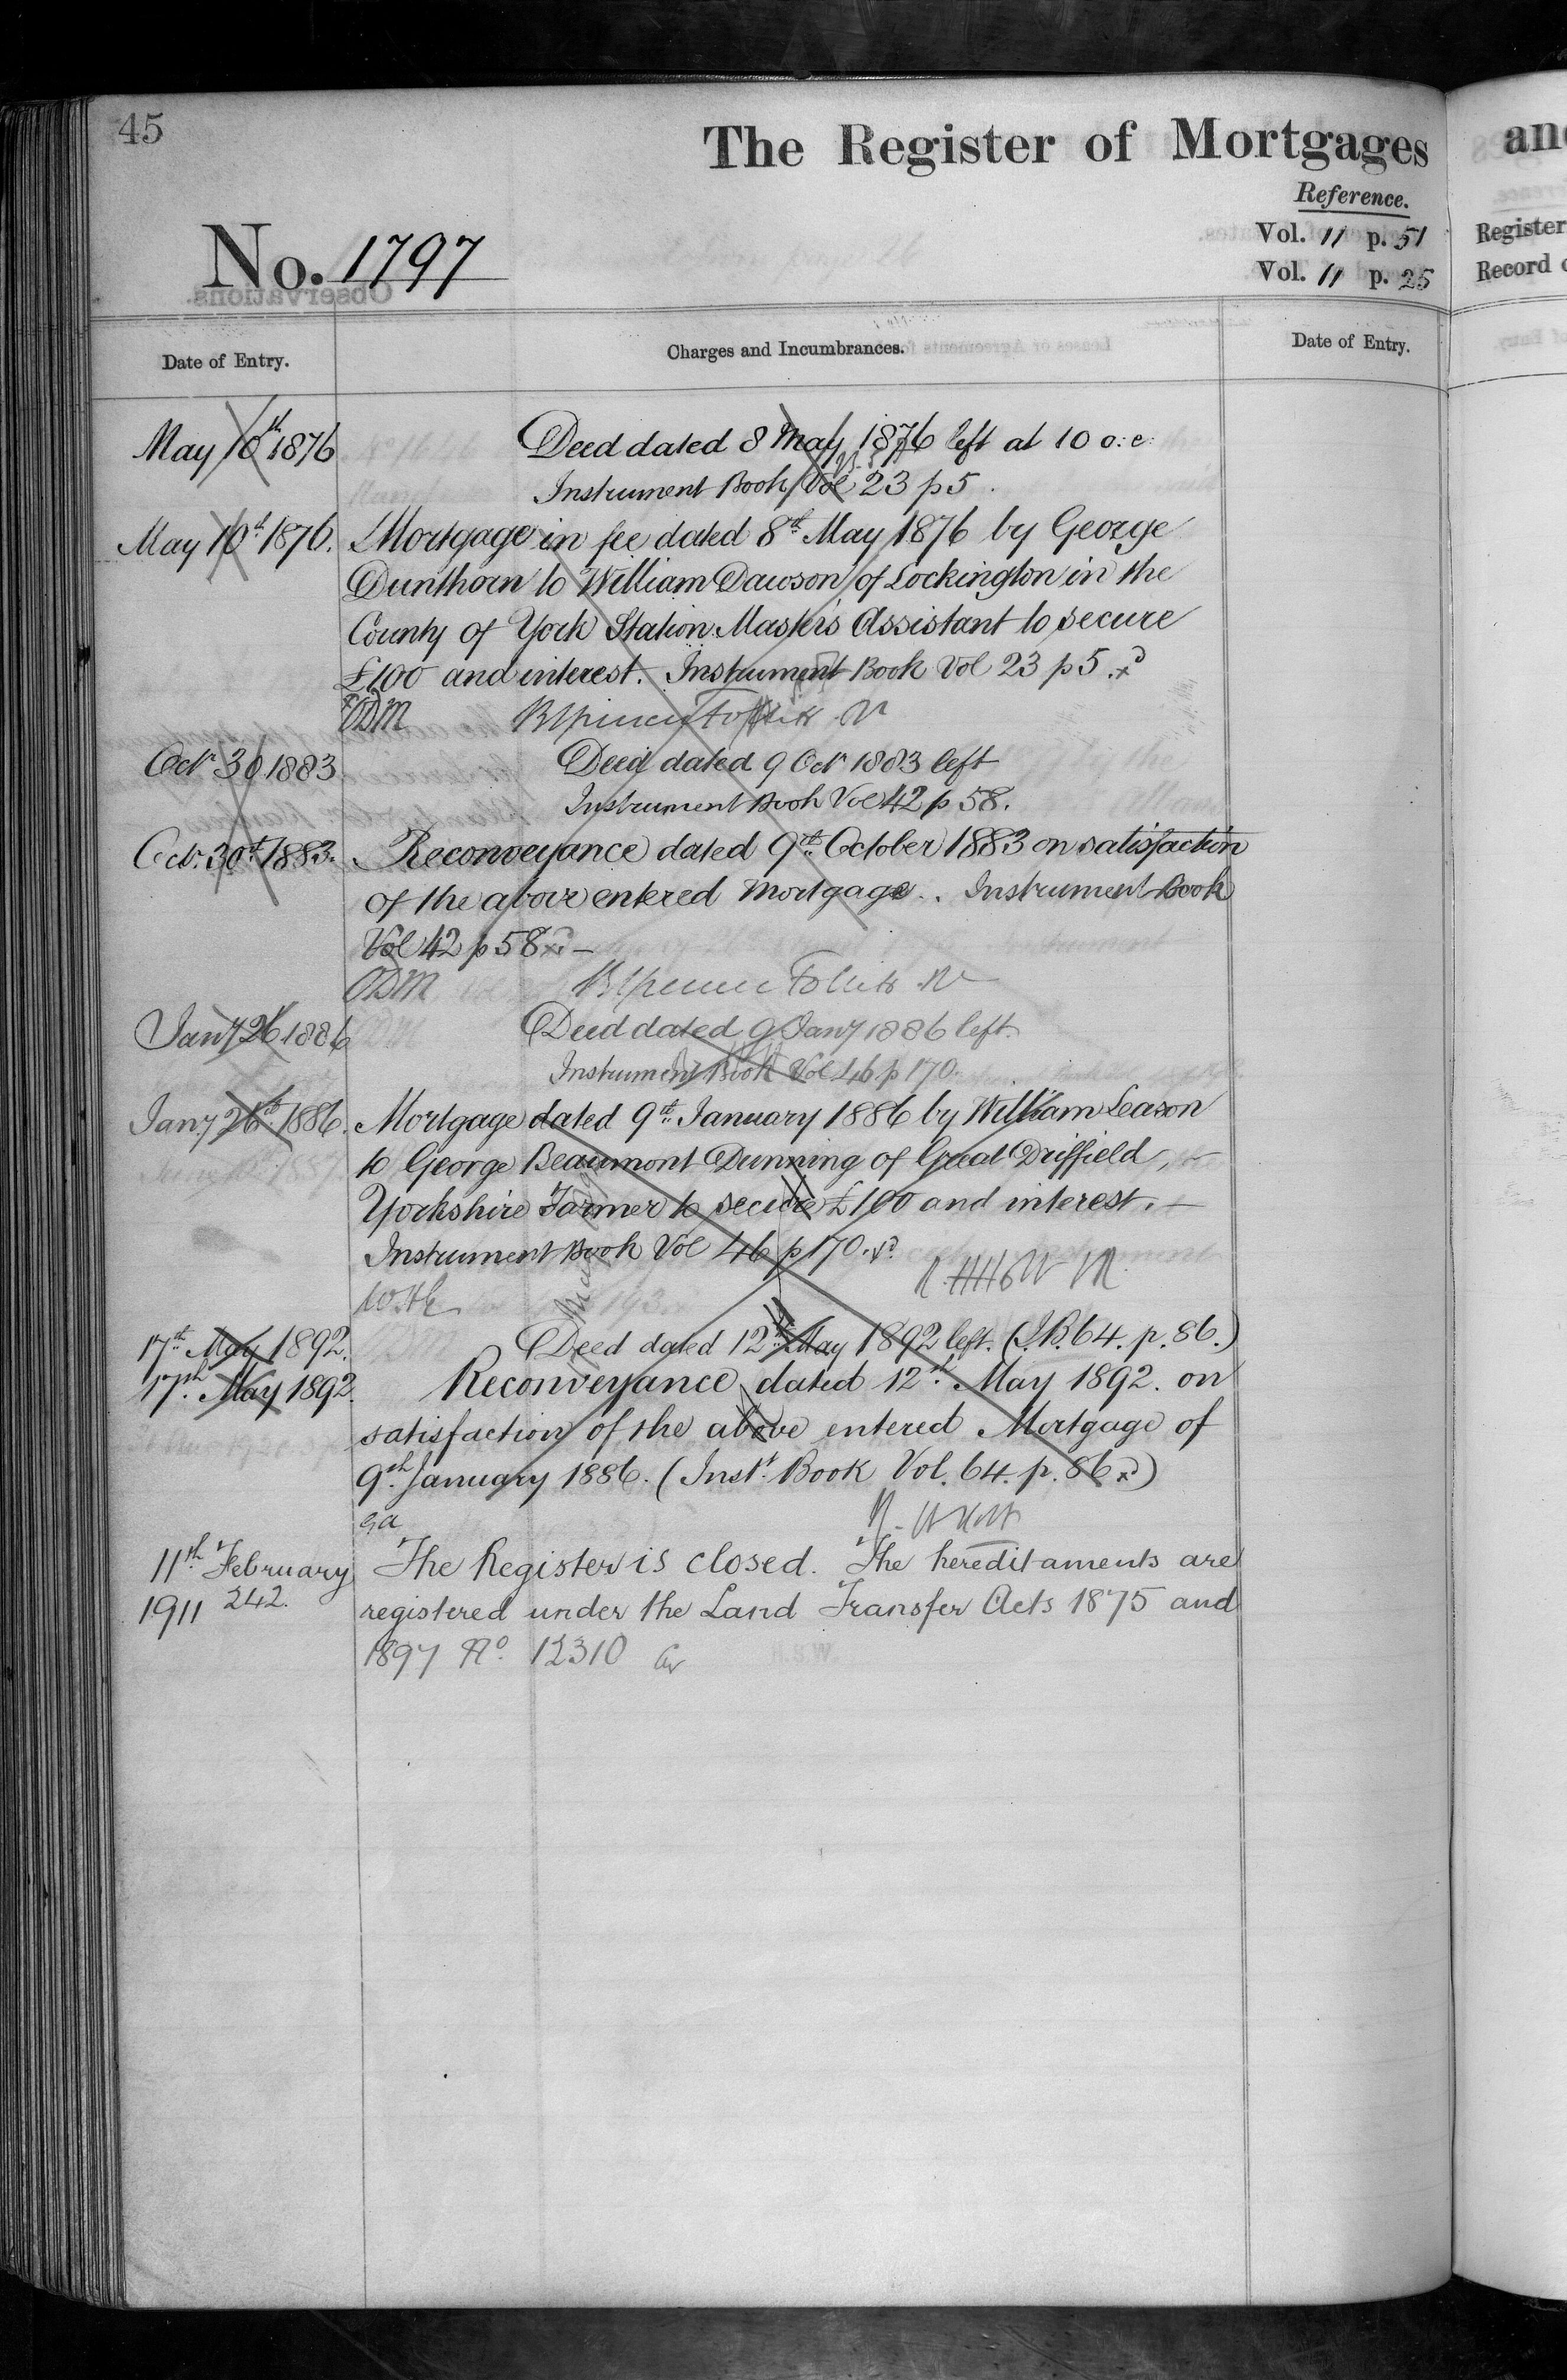 45
The Register of Mortgages
and
Reference.
No. 1797
Vol. 11 p. 51
Vol. 11 p. 25
Register
Record
Observations.
Date of Entry.
Charges and Incumbrances.
Date of Entry.
May 10th 1876
Deed dated 8 May 1876 left at 10 o:c:
Instrument Book Vol 23 p 5.
May 10th 1876.
Mortgage in fee dated 8th May 1876 by George
Dunthorn to William Dawson of Lockington in the
County of York Station Master's Assistant to secure
£100 and interest. Instrument Book Vol 23 p 5.
ODM
Octr 30 1883
Deed dated 9 Octr 1883 left
Instrument Book Vol 42 p 58.
Octr 30th 1883.
Reconveyance dated 9th October 1883 on satisfaction
of the above entered Mortgage. Instrument Book
Vol 42 p 58
ODM
Jany 26 1886
Deed dated 9 Jany 1886 left
Instrument Book Vol 46 p 170.
Jany 26th 1886.
Mortgage dated 9th January 1886 by William Leason
to George Beaumont Dunning of Great Driffield,
Yorkshire Farmer to secure £100 and interest.
Instrument Book Vol 46 p 170.
17th May 1892.
Deed dated 12th May 1892 left. (I.B. 64. p. 86.)
17th May 1892.
Reconveyance dated 12th May 1892. on
satisfaction of the above entered Mortgage of
9th January 1886. (Inst. Book Vol. 64. p. 86)
11th February
1911 242.
The Register is closed. The hereditaments are
registered under the Land Transfer Acts 1875 and
1897 No. 12310